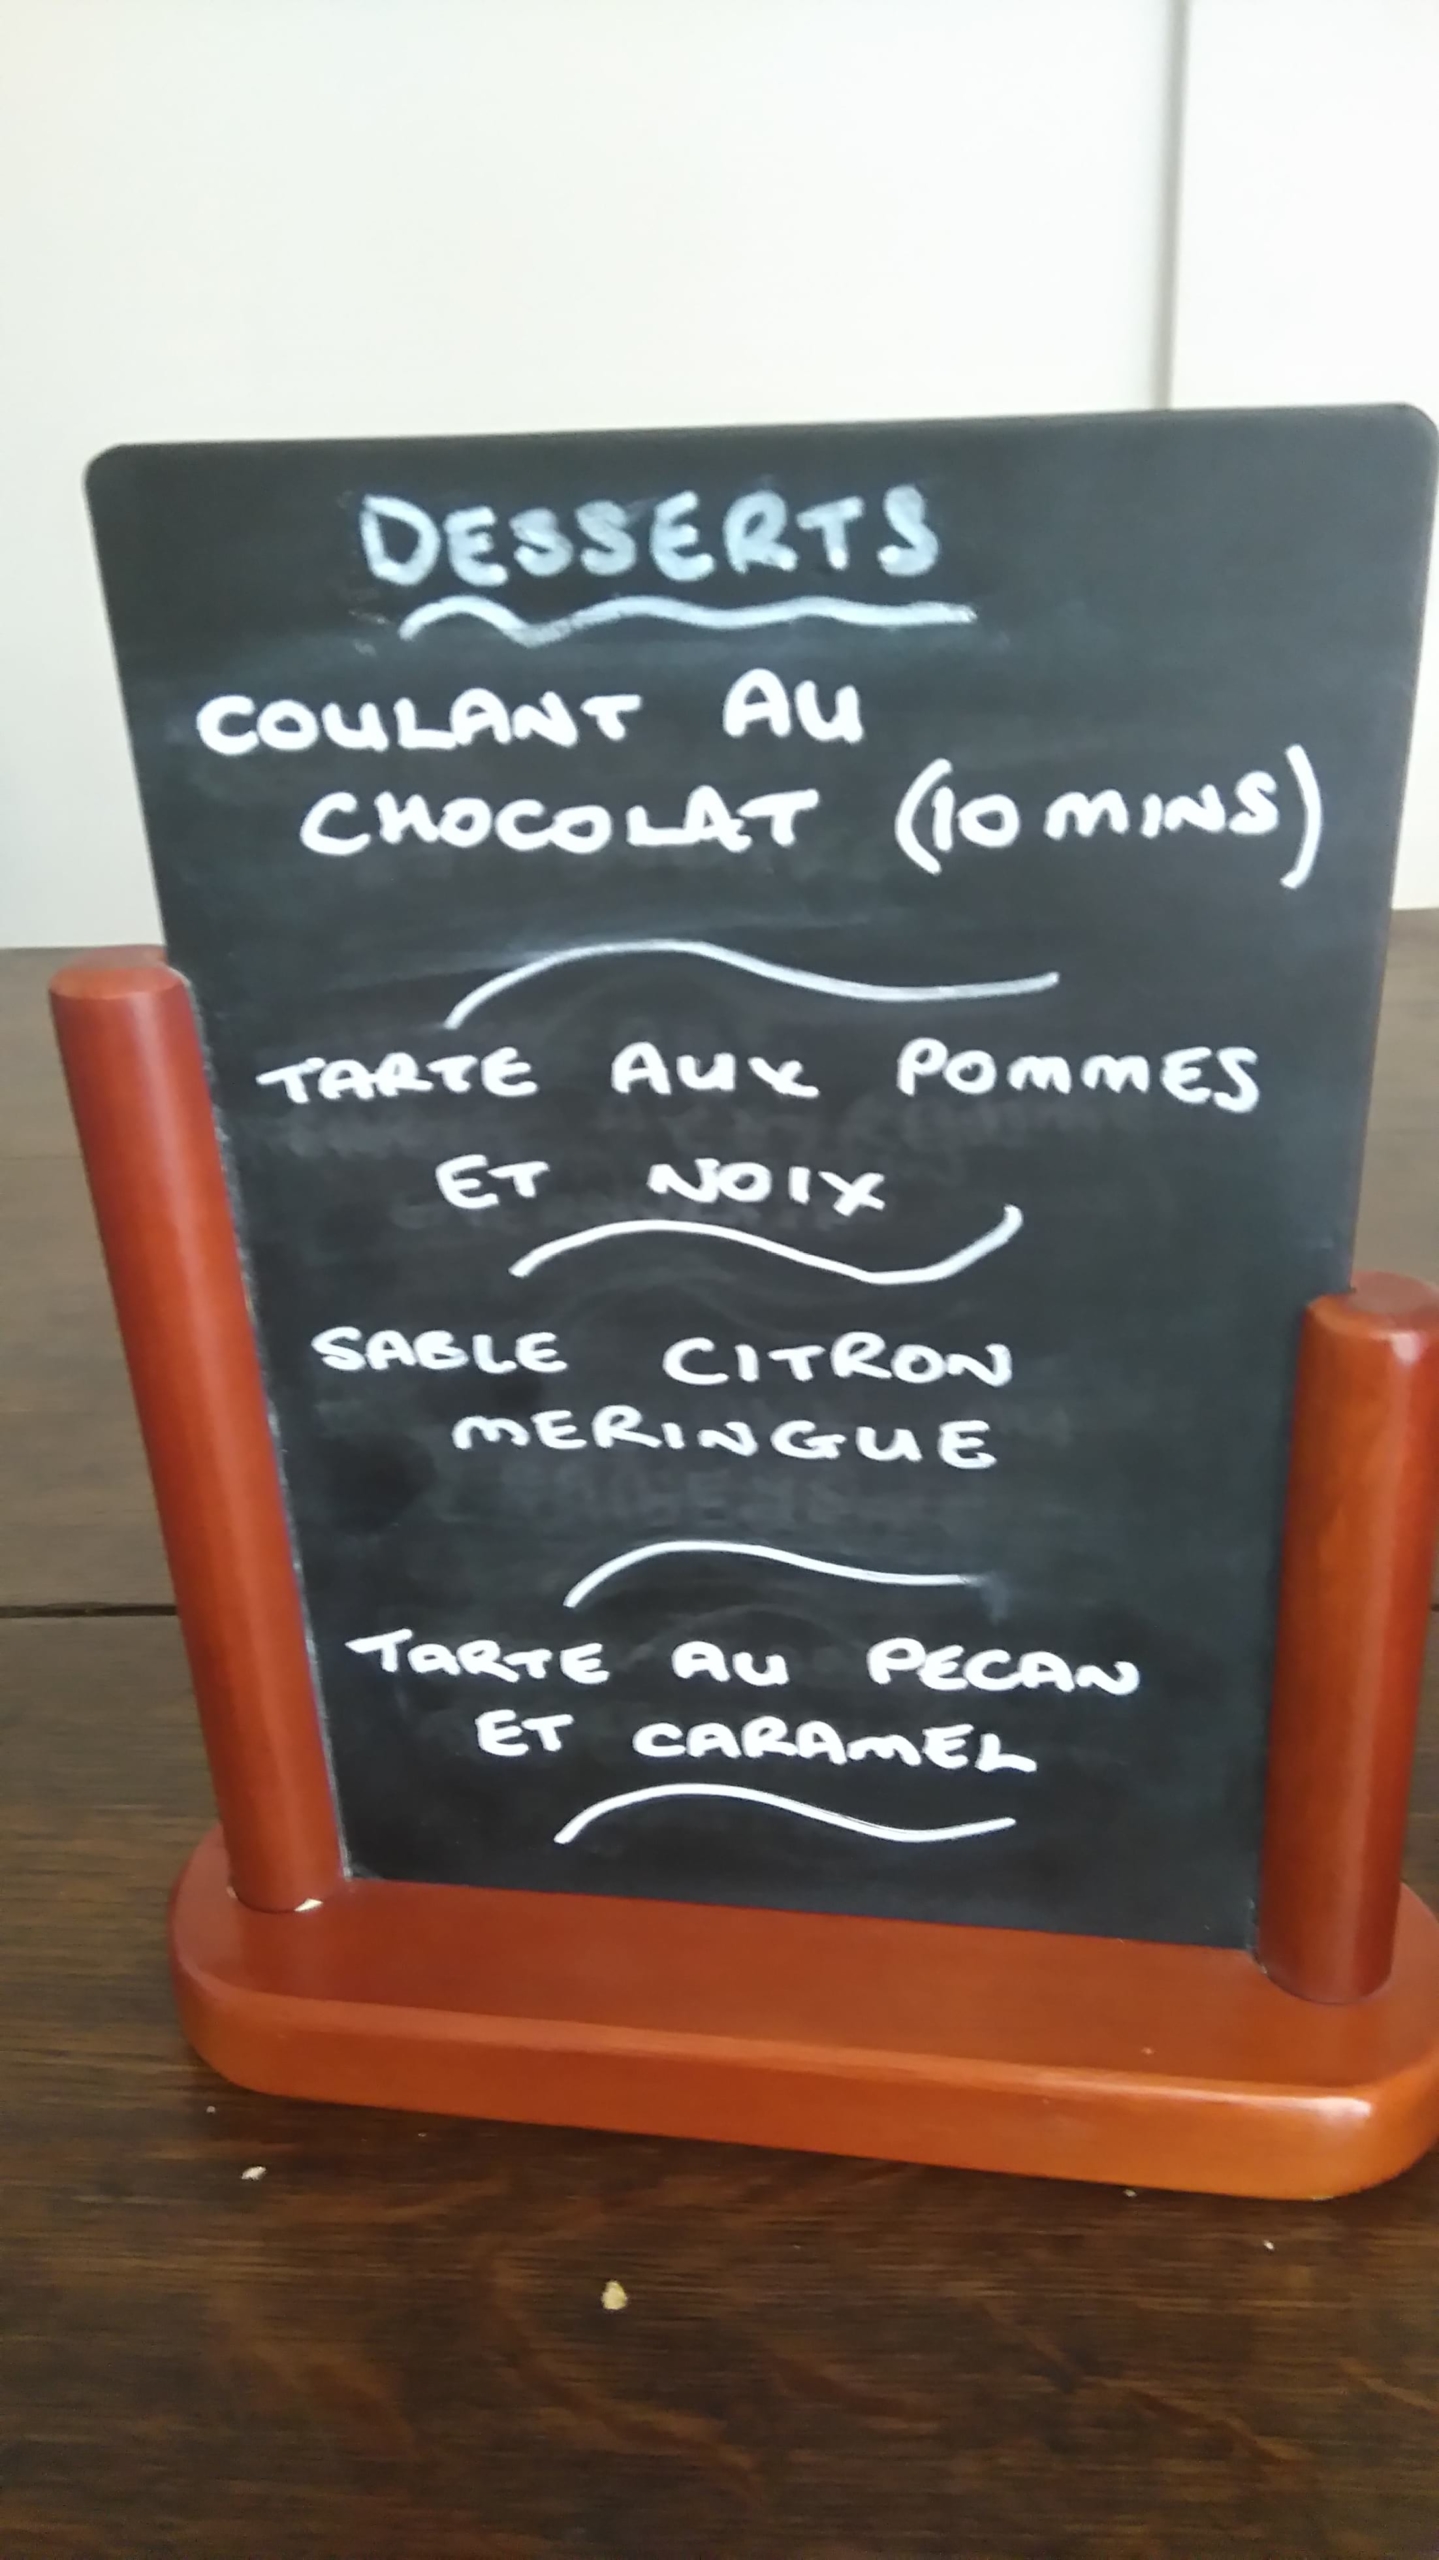 DESSERTS
COULANT AU
CHOCOLAT (10 MINS)
TARTE AUX POMMES
ET NOIX
SABLE CITRON
MERINGUE
TARTE AU PECAN
ET CARAMEL